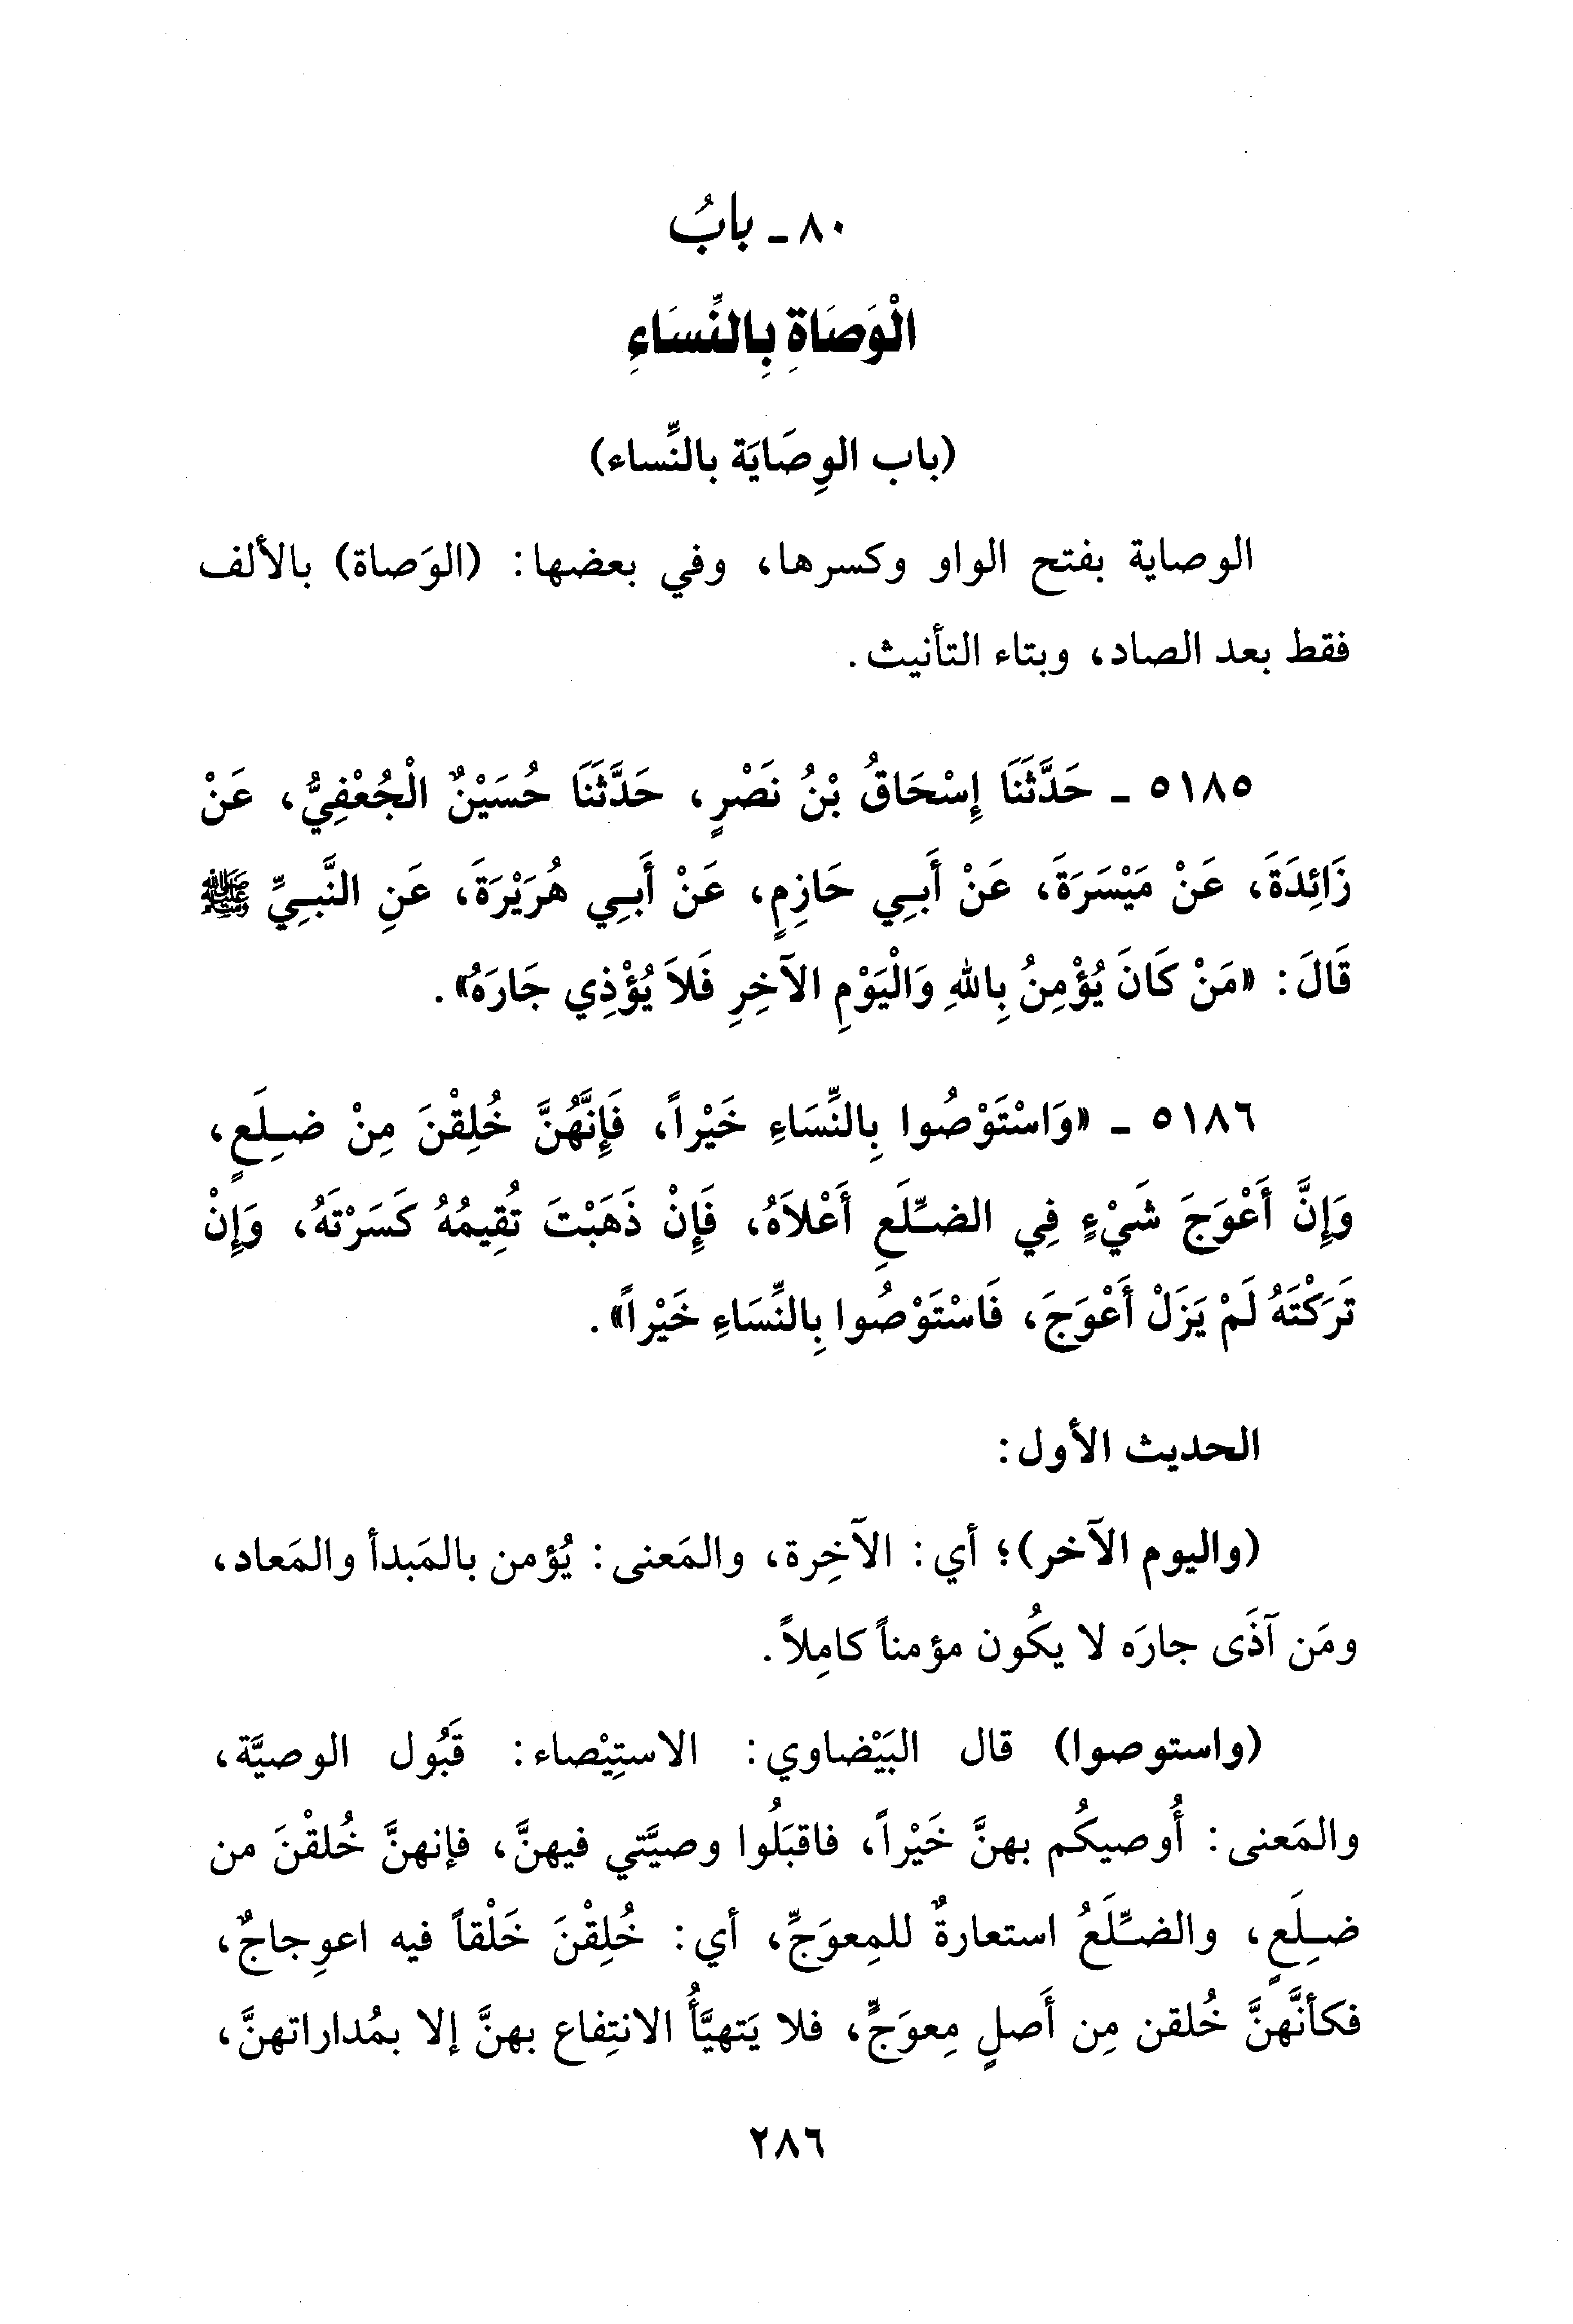 ٨٠ - بابُ
الْوَصَاةِ بِالنِّسَاءِ
(باب الوِصَايَة بالنِّساء)
الوصاية بفتح الواو وكسرها، وفي بعضها: (الوَصاة) بالألف
فقط بعد الصاد، وبتاء التأنيث.
٥١٨٥ - حَدَّثَنَا إِسْحَاقُ بْنُ نَصْرٍ، حَدَّثَنَا حُسَيْنٌ الْجُعْفِيُّ، عَنْ
زَائِدَةَ، عَنْ مَيْسَرَةَ، عَنْ أَبِي حَازِمٍ، عَنْ أَبِي هُرَيْرَةَ، عَنِ النَّبِيِّ ﷺ
قَالَ: «مَنْ كَانَ يُؤْمِنُ بِاللهِ وَالْيَوْمِ الآخِرِ فَلاَ يُؤْذِي جَارَهُ».
٥١٨٦ - «وَاسْتَوْصُوا بِالنِّسَاءِ خَيْراً، فَإِنَّهُنَّ خُلِقْنَ مِنْ ضِلَعٍ،
وَإِنَّ أَعْوَجَ شَيْءٍ فِي الضِّلَعِ أَعْلاَهُ، فَإِنْ ذَهَبْتَ تُقِيمُهُ كَسَرْتَهُ، وَإِنْ
تَرَكْتَهُ لَمْ يَزَلْ أَعْوَجَ، فَاسْتَوْصُوا بِالنِّسَاءِ خَيْراً».
الحديث الأول:
(واليوم الآخر)؛ أي: الآخِرة، والمَعنى: يُؤمن بالمَبدأ والمَعاد،
ومَن آذَى جارَه لا يكُون مؤمناً كامِلاً.
(واستوصوا) قال البَيْضاوي: الاستِيْصاء: قَبُول الوصيَّة،
والمَعنى: أُوصيكُم بهنَّ خَيْراً، فاقبَلُوا وصيَّتي فيهنَّ، فإنهنَّ خُلقْنَ من
ضِلَعٍ، والضِّلَعُ استعارةٌ للمِعوَجِّ، أي: خُلِقْنَ خَلْقاً فيه اعوِجاجٌ،
فكأنَّهنَّ خُلقن مِن أَصلٍ مِعوَجٍّ، فلا يَتهيَّأُ الانتِفاع بهنَّ إلا بمُداراتهنَّ،
٢٨٦